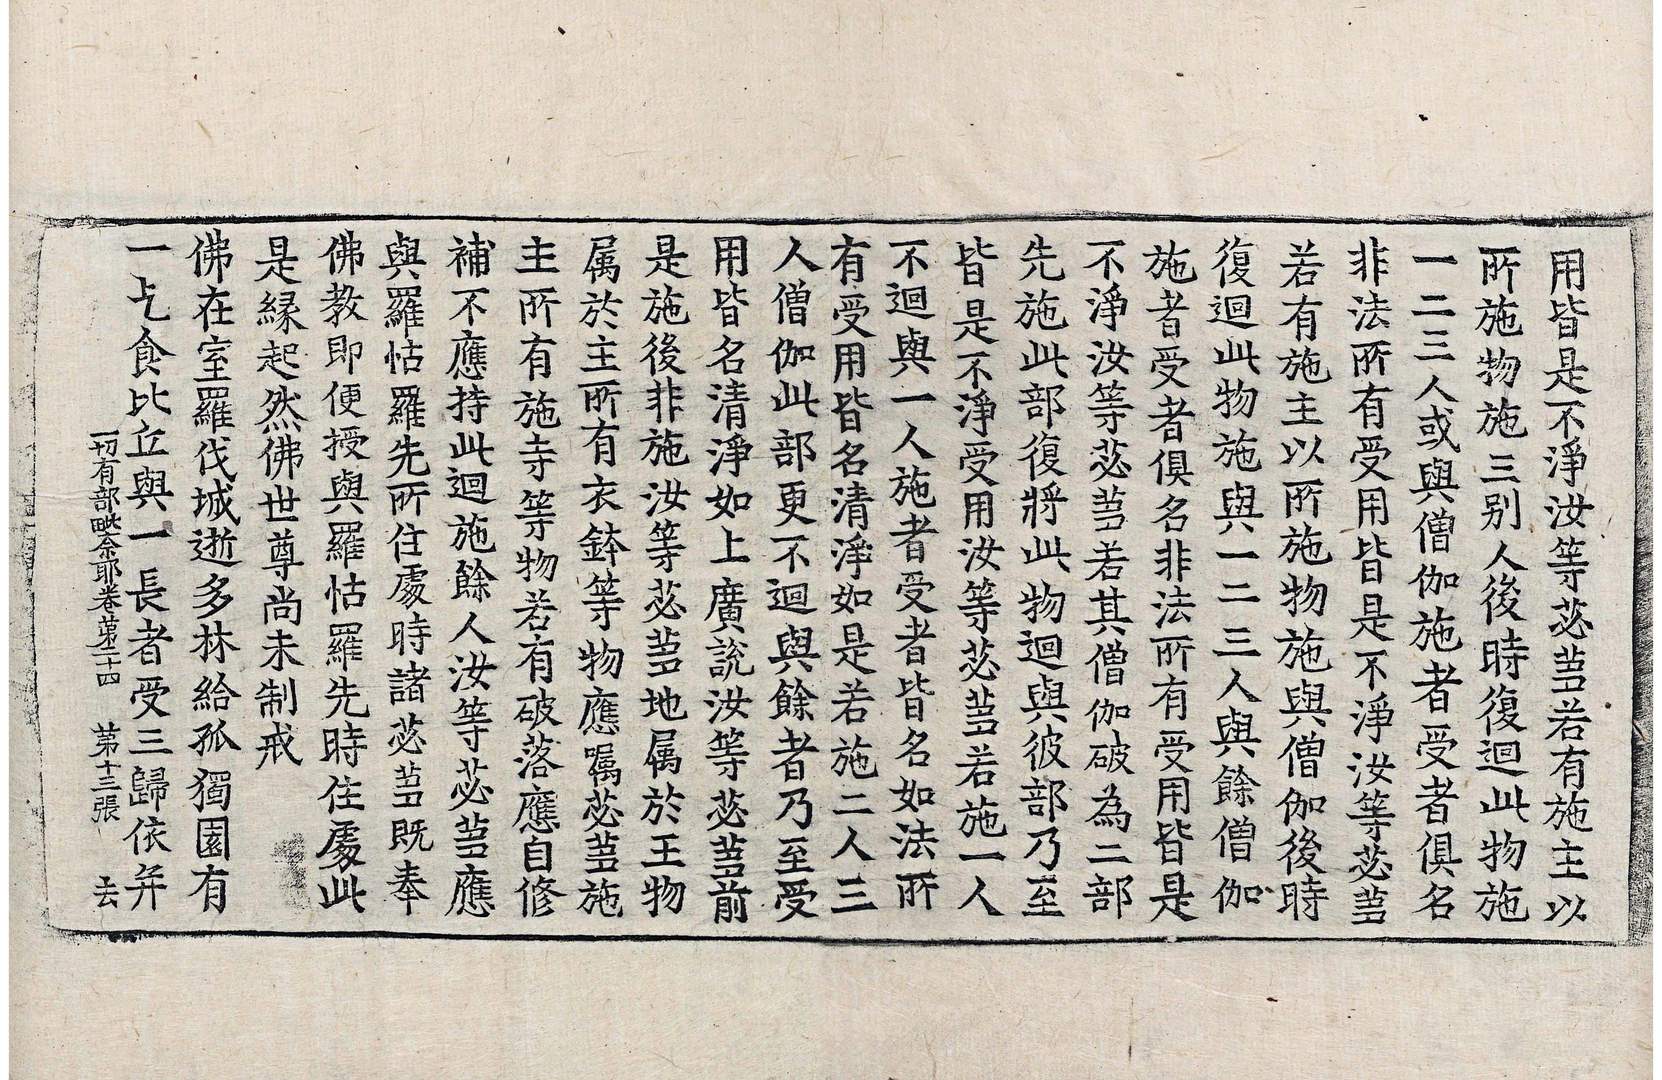 用皆是不淨汝等苾蒭若有施主以
所施物施三别人後時復迴此物施
一二三人或與僧伽施者受者俱名
非法所有受用皆是不淨汝等苾蒭
若有施主以所施物施與僧伽後時
復迴此物施與一二三人與餘僧伽
施者受者俱名非法所有受用皆是
不淨汝等苾蒭若其僧伽破為二部
先施此部復將此物迴與彼部乃至
皆是不淨受用汝等苾蒭若施一人
不迴與一人施者受者皆名如法所
有受用皆名清淨如是若施二人三
人僧伽此部更不迴與餘者乃至受
用皆名清淨如上廣說汝等苾蒭前
是施後非施汝等苾蒭地属於王物
属於主所有衣鉢等物應嘱苾蒭施
主所有施寺等物若有破落應自修
補不應持此迴施餘人汝等苾蒭應
與羅怙羅先所住處時諸苾蒭既奉
佛教即便授與羅怙羅先時住處此
是縁起然佛世尊尚未制戒
佛在室羅伐城逝多林給孤獨園有
一乞食比丘與一長者受三歸依并
一切有部毗奈耶卷第三十四 第十三張 去